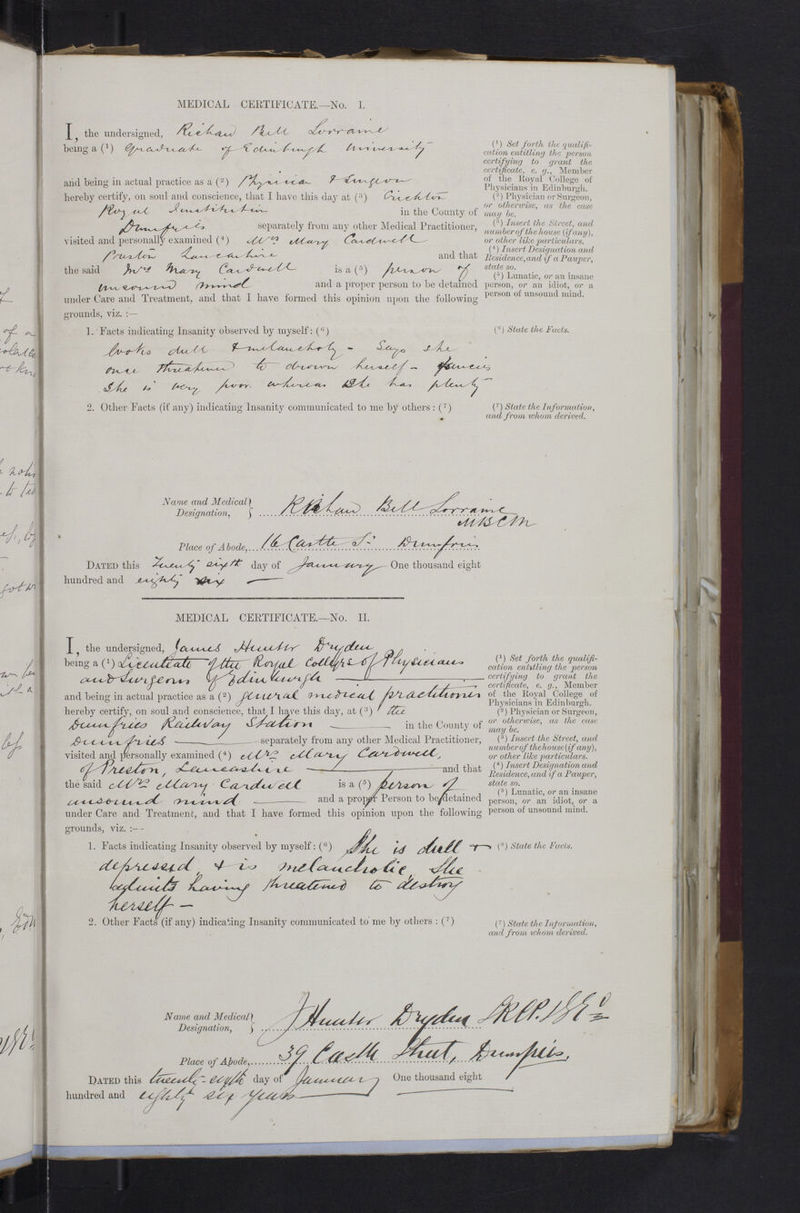 MEDICAL CERTIFICATE.—No. I.
I, the undersigned, Richard Bell Lorraine
being a (¹) Graduate of Edinburgh University
and being in actual practice as a (²) Physician & Surgeon
hereby certify, on soul and conscience, that I have this day at (³) Crichton
Royal Institution in the County of
Dumfries separately from any other Medical Practitioner,
visited and personally examined (⁴) Mrs Mary Cardwell
Preston Lancashire and that
the said Mrs Mary Cardwell is a (⁵) person of
unsound mind and a proper person to be detained
under Care and Treatment, and that I have formed this opinion upon the following
grounds, viz. :—
(¹) Set forth the qualifi-
cation entitling the person
certifying to grant the
certificate, e. g., Member
of the Royal College of
Physicians in Edinburgh.
(²) Physician or Surgeon,
or otherwise, as the case
may be.
(³) Insert the Street, and
number of the house (if any),
or other like particulars.
(⁴) Insert Designation and
Residence, and if a Pauper,
state so.
(⁵) Lunatic, or an insane
person, or an idiot, or a
person of unsound mind.
1. Facts indicating Insanity observed by myself: (⁶)
(⁶) State the Facts.
looks dull & melancholy - Says she
once threatened to drown herself - fancies
she is very poor whereas she has plenty
2. Other Facts (if any) indicating Insanity communicated to me by others : (⁷)
(⁷) State the Information,
and from whom derived.
Name and Medical
Designation, Richard Bell Lorraine
MB CM
Place of Abode, 16 Castle St Dumfries
DATED this Twenty sixth day of January One thousand eight
hundred and eighty six
MEDICAL CERTIFICATE.—No. II.
I, the undersigned, James Hunter Dryden
being a (¹) Licentiate of the Royal Colleges of Physicians
and Surgeons of Edinburgh
and being in actual practice as a (²) general medical practitioner
hereby certify, on soul and conscience, that I have this day, at (³) the
Dumfries Railway Station in the County of
Dumfries separately from any other Medical Practitioner,
visited and personally examined (⁴) Mrs Mary Cardwell,
of Preston, Lancashire and that
the said Mrs Mary Cardwell is a (⁵) person of
unsound mind and a proper Person to be detained
under Care and Treatment, and that I have formed this opinion upon the following
grounds, viz. :--
(¹) Set forth the qualifi-
cation entitling the person
certifying to grant the
certificate, e. g., Member
of the Royal College of
Physicians in Edinburgh.
(²) Physician or Surgeon,
or otherwise, as the case
may be.
(³) Insert the Street, and
number of the house (if any),
or other like particulars.
(⁴) Insert Designation and
Residence, and if a Pauper,
state so.
(⁵) Lunatic, or an insane
person, or an idiot, or a
person of unsound mind.
1. Facts indicating Insanity observed by myself: (⁶) She is dull &
(⁶) State the Facts.
depressed & is melancholic, She
admits having threatened to destroy
herself —
2. Other Facts (if any) indicating Insanity communicated to me by others : (⁷)
(⁷) State the Information,
and from whom derived.
Name and Medical
Designation, J Hunter Dryden
Place of Abode, 39 Castle Street, Dumfries.
DATED this twenty-eighth day of January One thousand eight
hundred and eighty six years